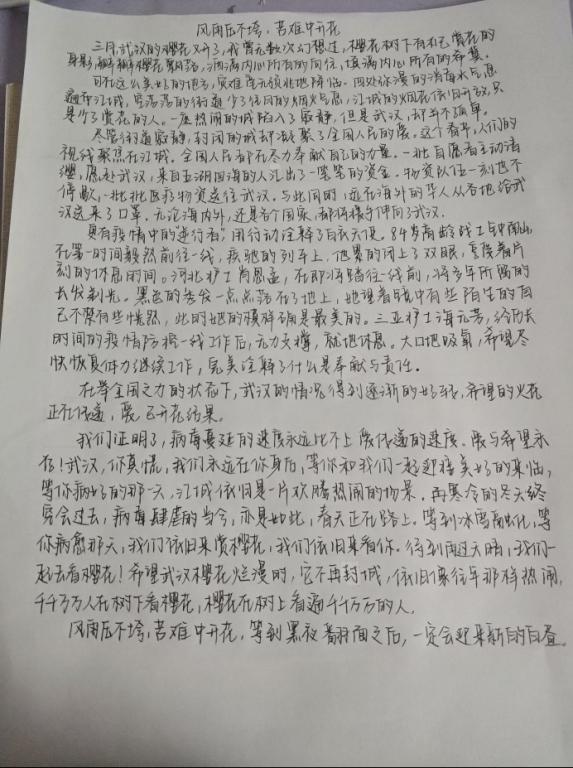 风雨压不垮，苦难中开花
三月，武汉的樱花又开了，我曾无数次幻想过，樱花树下有自己赏花的
身影，翩翩樱花飘落，洒满内心所有的向往，填满内心所有的希冀。
可在这么美好的地方，灾难毫无预兆地降临。四处弥漫的消毒水气息
遍布江城，空荡荡的街道少了往日的烟火气息，江城的烟花依旧开放，只
是少了赏花的人。一座热闹的城陷入了寂静，但是武汉，却并不孤单。
尽管街道寂静，封闭的城却凝聚了全国人民的爱。这个春节，人们的
视线聚焦在江城。全国人民都在尽力奉献自己的力量。一批自愿者主动请
缨，愿赴武汉，来自五湖四海的人汇出了一笔笔的资金。物资队伍一刻也不
停歇，一批批医疗物资送往武汉。与此同时，远在海外的华人从各地给武
汉送来了口罩。无论海内外，还是各个国家，都将援手伸向了武汉。
更有疫情中的"逆行者"用行动诠释了白衣天使。84岁高龄战士钟南山
在第一时间毅然前往一线，疾驰的列车上，他累的闭上了双眼，享受着片
刻的休息时间。河北护士肖思孟，在即将踏往一线前，将多年所留的
长发剃光。黑色的秀发一点点落在了地上，她望着镜中有些陌生的自
己不禁有些恍然，此时她的模样确是最美的。三亚护士海元芳，经历长
时间的疫情防控一线工作后，无力支撑，就地休息，大口地吸氧，希望尽
快恢复体力继续工作，完美诠释了什么是奉献与责任。
在举全国之力的状态下，武汉的情况得到逐渐的好转，希望的火花
正在传递，爱已开花结果。
我们证明了，病毒蔓延的速度永远比不上爱传递的速度。爱与希望永
存！武汉，你莫慌，我们永远在你身后，等你和我们一起迎接美好的来临，
等你病好的那一天，江城依旧是一片欢腾热闹的场景。再寒冷的冬天终
究会过去，病毒肆虐的当今，亦是如此，春天正在路上。等到冰雪融化，等
你病愈那天，我们依旧来赏樱花，我们依旧来看你。待到雨过天晴，我们一
起去看樱花！希望武汉樱花烂漫时，它不再封城，依旧像往年那样热闹，
千千万万人在树下看樱花，樱花在树上看遍千千万万的人。
风雨压不垮，苦难中开花，等到黑夜翻面之后，一定会迎来新的白昼。